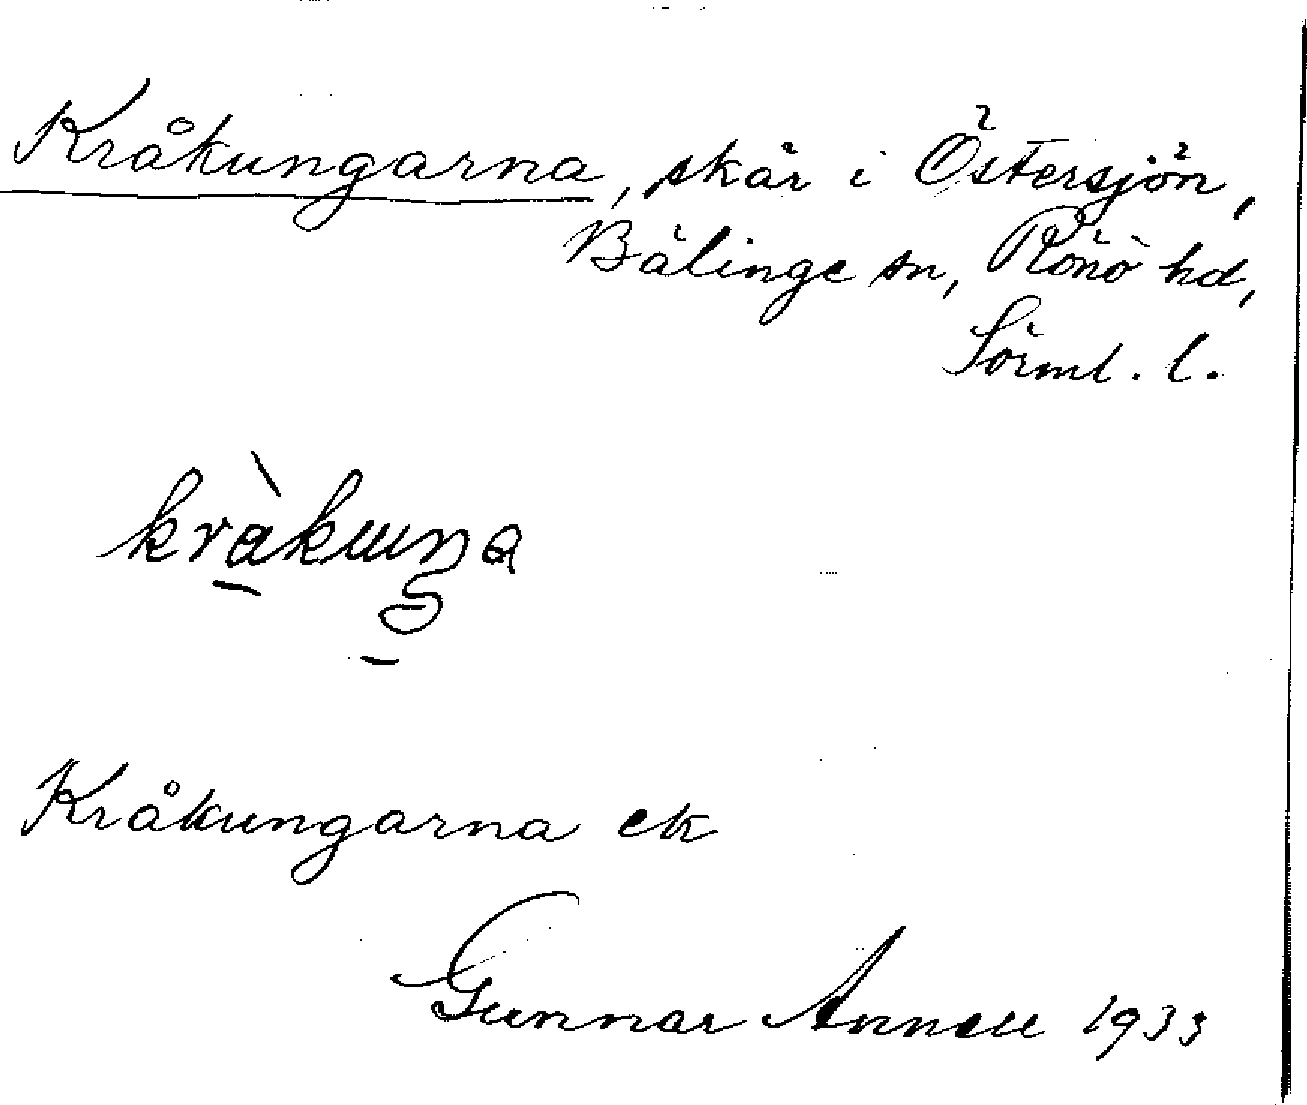 Kråkungarna, skär i Östersjön,
Bälinge sn, Rönö hd,
Sörml. l.
kràkuŋa
Kråkungarna ek
Gunnar Annell 1933